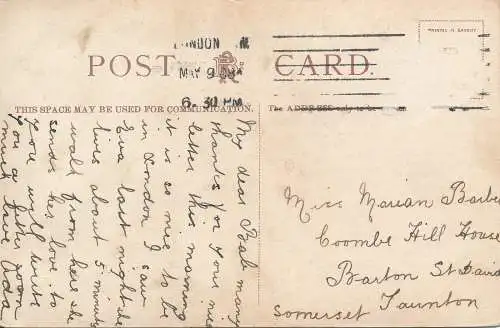 LONDON
MAY 9
6. 30 PM
POST CARD.
THIS SPACE MAY BE USED FOR COMMUNICATION.
The ADDRESS only to be
My dear Bab many
thanks for your nice
letter this morning
it is so nice to be
in London I saw
Eva last night she
lives about 5 minutes
walk from here she
sends her love to
you will write
you a letter soon
much love Ada
Miss Marian Barber
Coombe Hill House
Barton St David
Somerset Taunton